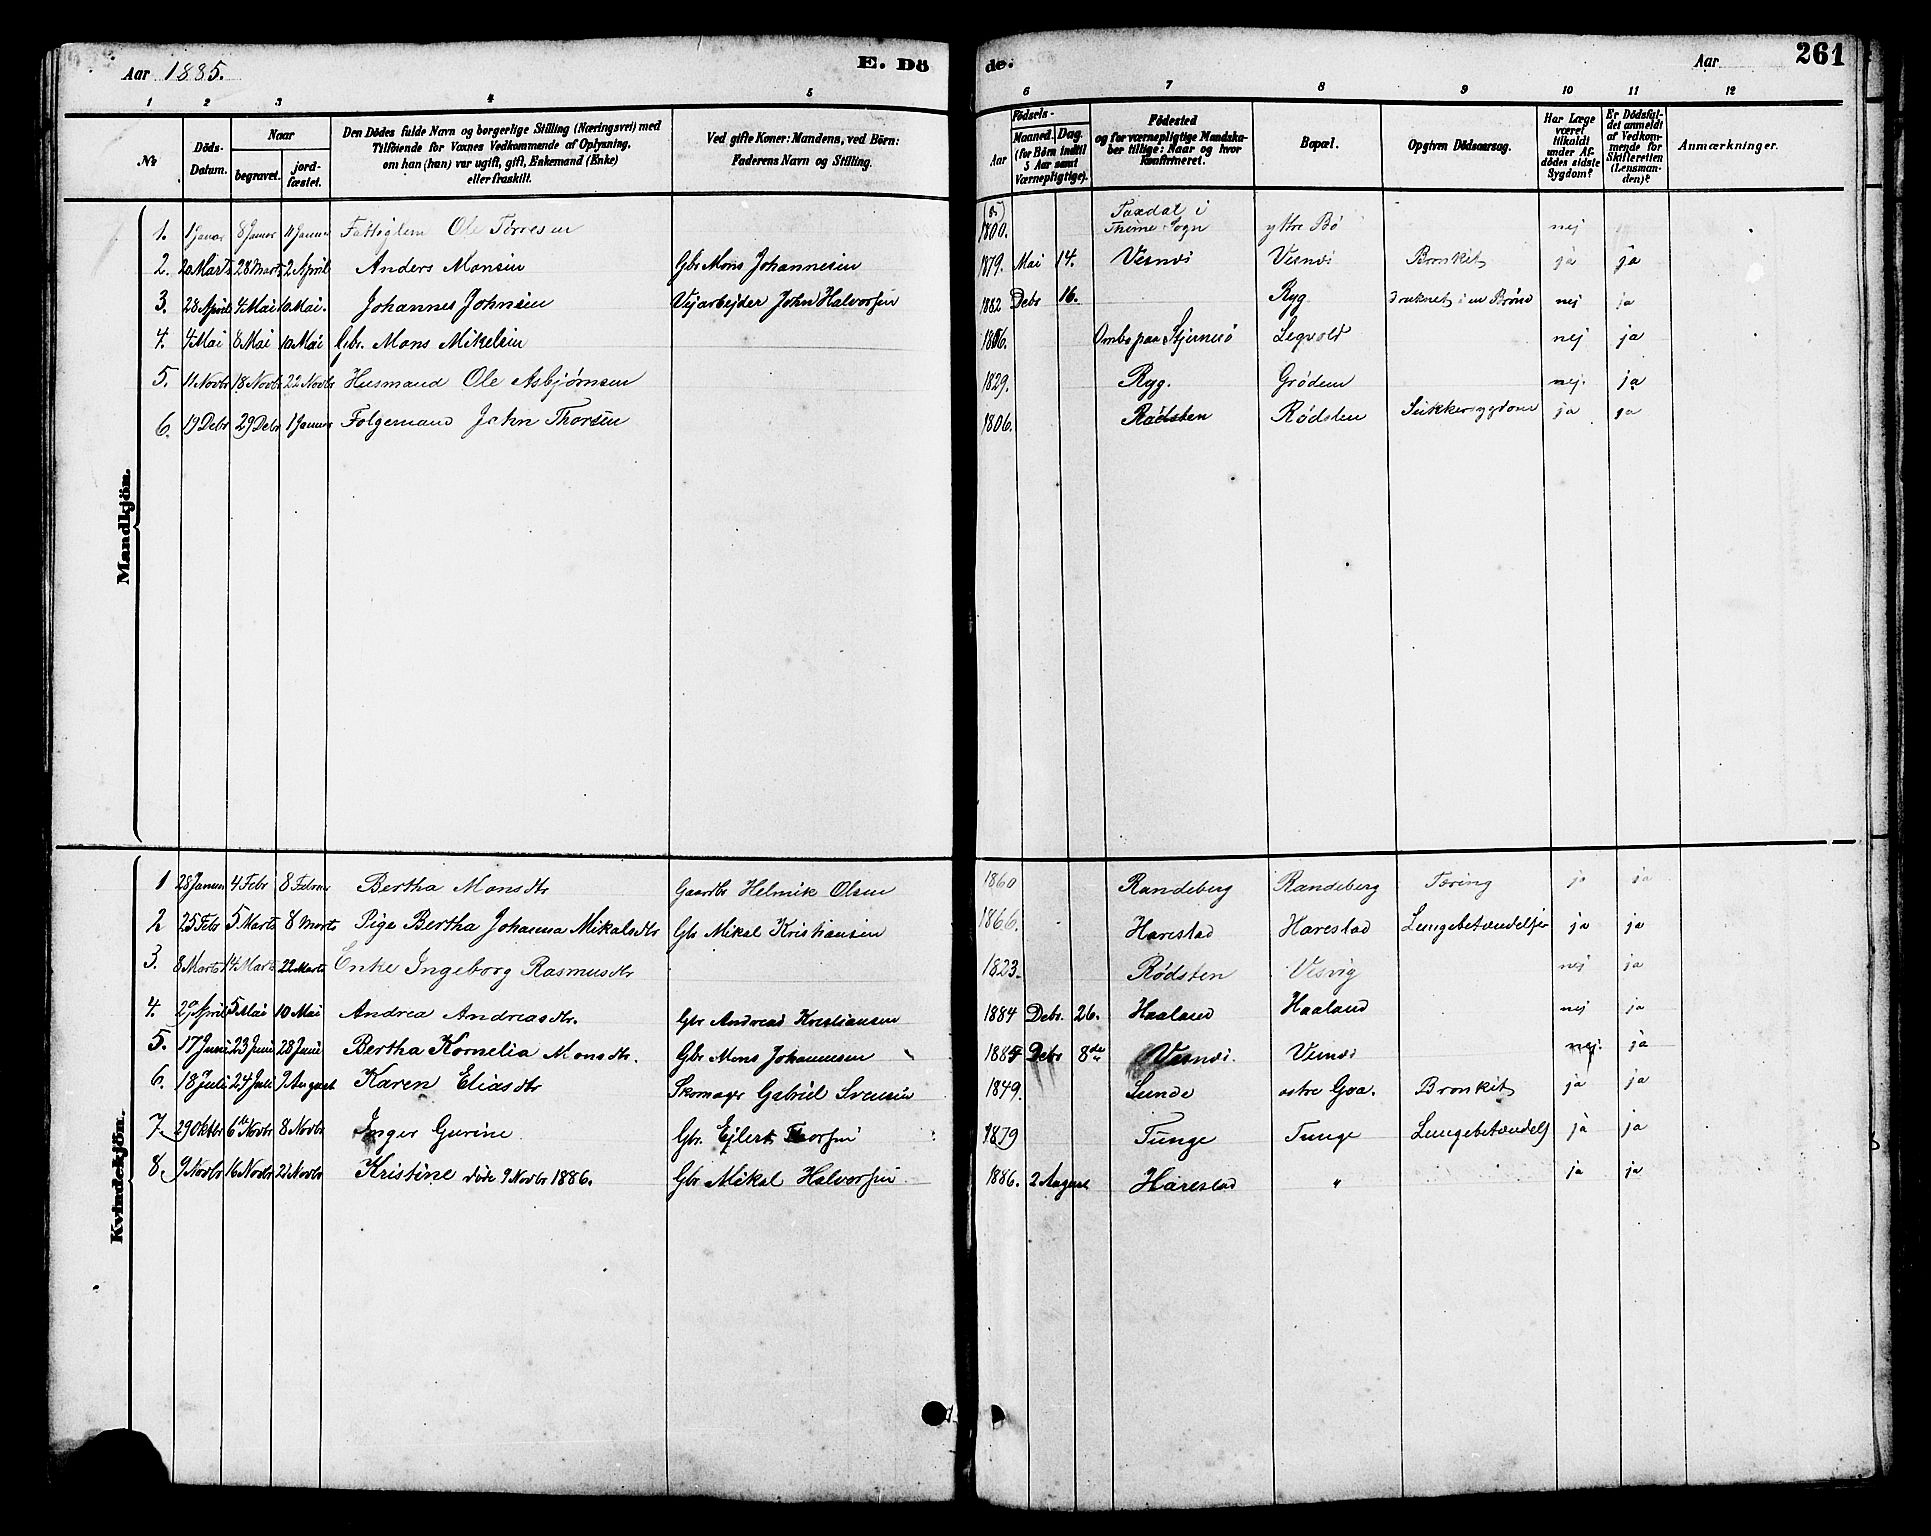 Aar 1885. E. Dö
de. Aar 261
1 2 3 4 5
6 7 8 9 10 11 12
No
Döds-Datum.
Naar
begravet.
jord-fæstet.
Den Dödes fulde Navn og borgerlige Stilling (Næringsvei) med
Tilföiende for Voxnes Vedkommende af Oplysning,
om han (hun) var ugift, gift, Enkemand (Enke)
eller fraskilt.
Ved gifte Koner: Mandens, ved Börn:
Faderens Navn og Stilling.
Födsels-
Aar
Maaned. Dag.
(for Börn indtil
5 Aar samt
Værnepligtige).
Födested
og for værnepligtige Mandska-
ber tillige: Naar og hvor
konfirmeret.
Bopæl.
Opgiven Dödsaarsag.
Har Læge
været
tilkaldt
under Af-
dödes sidste
Sygdom?
Er Dödsfal-
det anmeldt
af Vedkom-
mende for
Skifteretten
(Lensman-
den)?
Anmærkninger.
Mandkjön.
1. 1 Januar 8 Januar 11 Januar Fattiglem Ole Tørresen 1800. Taxdal i Thime Sogn ytre Bø nej
2. 20 Marts 28 Marts 2 April Anders Monsen Gbr Mons Johannesen 1879. Mai 14. Viste Bronkit ja ja
3. 28 April 4 Mai 10 Mai. Johannes Johnsen Vejarbejder John Halvorsen 1882 Debr 16. Ryg druknet i en Brønd nej ja
4. 4 Mai 8 Mai 10 Mai Gbr. Mons Mikelsen Ombo paa Stjernerø nej ja
5. 11 Novbr 18 Novbr 22 Novbr Husmand Ole Asbjørnsen 1829. Ryg. Grødem nej. ja
6. 19 Debr 29 Debr 1 Januar Følgemand John Thorsen 1806. Rødsten Rødsten Sukkersygdom ja ja
Kvindekjön.
1 28 Januar 4 Febr 8 Februar Bertha Monsdtr Gaardbr Helmik Olsen 1860 Randeberg Randeberg Tæring ja ja
2 25 Febr 5 Marts 8 Marts Pige Bertha Johanna Mikalsdtr Gbr Mikal Kristiansen 1866. Harestad Harestad Lungebetændelse ja ja
3. 8 Marts 14 Marts 22 Marts Enke Ingeborg Rasmusdtr 1823. Rødsten Visvig nej ja
4. 29 April 5 Mai 10 Mai Andrea Andreasdtr. Gbr Andreas Kristiansen 1884 Debr. 26. Haaland Haaland nej ja
5. 17 Juni 23 Juni 28 Juni Bertha Kornelia Monsdtr. Gbr Mons Johannesen 1884 Debr 8de nej. ja
6. 18 Juli 24 Juli 9 August Karen Eliasdtr Skomager Gabriel Svensen 1849. Sunde østre Goa. Bronkit ja ja
7. 29 Oktbr 6te Novbr 8 Novbr Inger Gurine Gbr. Ejlert Thorsen 1879 Tunge Tunge Lungebetændels ja ja
8. 9 Novbr 16 Novbr 21 Novbr Kristine døde 9 Novbr 1886. Gbr Mikal Halvorsen 1886. 2 August Harestad " ja ja